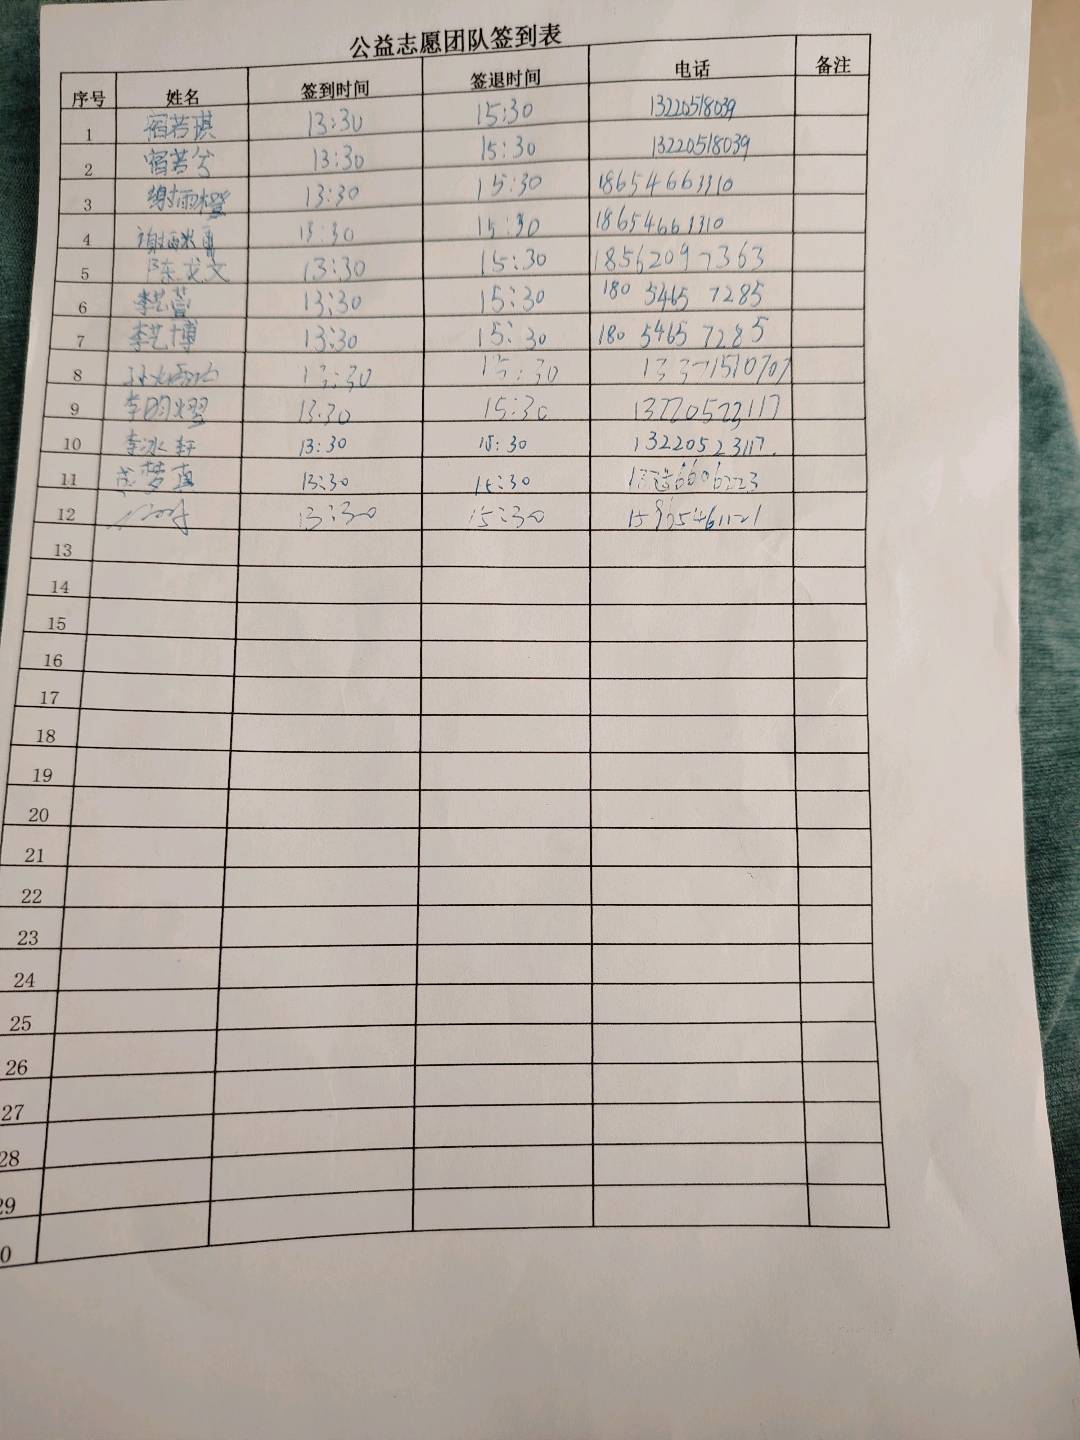 公益志愿团队签到表
序号 姓名 签到时间 签退时间 电话 备注
1 宿若琪 13:30 15:30 13220518039
2 宿若兮 13:30 15:30 13220518039
3 谢雨橙 13:30 15:30 18654663310
4 13:30 15:30 18654663310
5 陈龙文 13:30 15:30 18562097363
6 李艺萱 13:30 15:30 180 5465 7285
7 李艺博 13:30 15:30 180 5465 7285
8 13:30 15:30 13371510707
9 李昀熠 13:30 15:30 13220523117
10 李冰轩 13:30 15:30 13220523117.
11 13:30 15:30
12 13:30 15:30
13
14
15
16
17
18
19
20
21
22
23
24
25
26
27
28
29
0